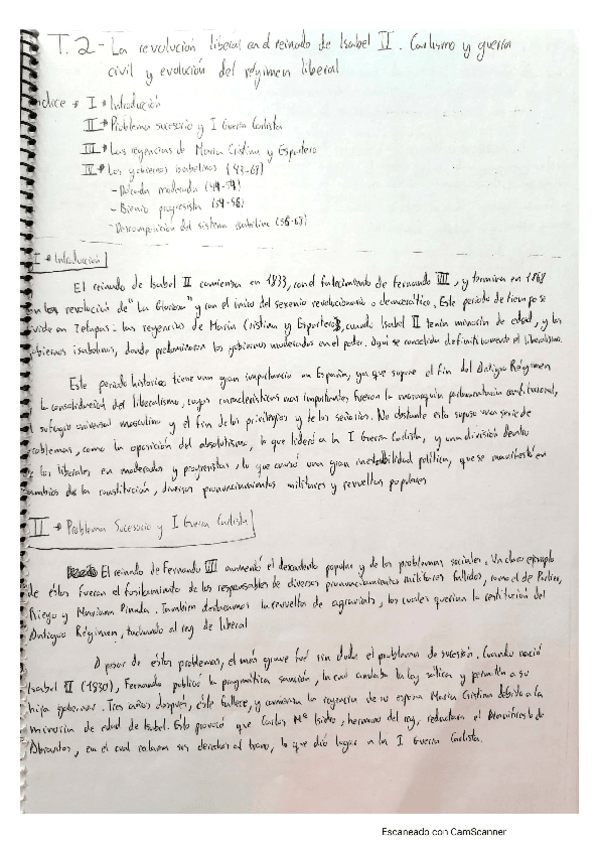 T.2 - La revolución liberal en el reinado de Isabel II. Carlismo y guerra
civil y evolución del régimen liberal
Indice → I → Introducción
II → Problema sucesorio y I Guerra Carlista
III → Las regencias de Maria Cristina y Espartero
IV → Los gobiernos isabelinos (43-68)
- Década moderada (44-54)
- Bienio progresista (54-56)
- Descomposición del sistema (56-68)
I → Introducción
El reinado de Isabel II comienza en 1833, con el fallecimiento de Fernando VII, y termina en 1868
con la revolución de "La Gloriosa" y con el inicio del sexenio revolucionario o democrático. Este periodo de tiempo se
divide en 2 etapas: las regencias de Maria Cristina y Espartero, cuando Isabel II tenía minoría de edad, y los
gobiernos isabelinos, donde predominaron los gobiernos moderados en el poder. Aquí se consolida definitivamente el liberalismo.
Este periodo histórico tiene una gran importancia en España, ya que supone el fin del Antiguo Régimen
y la consolidación del liberalismo, cuyas características mas importantes fueron la monarquía parlamentaria constitucional,
el sufragio universal masculino y el fin de los privilegios y de los señoríos. No obstante esto supuso una serie de
problemas, como la oposición del absolutismo, lo que lideró a la I Guerra Carlista, y una división dentro
de los liberales en moderados y progresistas, lo que causó una gran inestabilidad política, que se manifestó en
cambios de la constitución, diversos pronunciamientos militares y revueltas populares
II → Problema Sucesorio y I Guerra Carlista
El reinado de Fernando VII aumentó el descontento popular y de los problemas sociales. Un claro ejemplo
de éstos fueron el fusilamiento de los responsables de diversos pronunciamientos militares fallidos, como el de Porlier,
Riego y Mariana Pineda. Tambien destacamos la revuelta de agraviats, los cuales querían la restitución del
Antiguo Régimen, tachando al rey de liberal
A pesar de éstos problemas, el más grave fué sin duda el problema de sucesión. Cuando nació
Isabel II (1830), Fernando publicó la pragmática sanción, la cual anulaba la ley sálica y permitía a su
hija gobernar. Tres años después, éste fallece, y comienza la regencia de su esposa Maria Cristina debido a la
minoria de edad de Isabel. Esto provocó que Carlos Mª Isidro, hermano del rey, redactara el Manifiesto de
Abrantes, en el cual reclama sus derechos al trono, lo que dió lugar a la I Guerra Carlista.
Escaneado con CamScanner